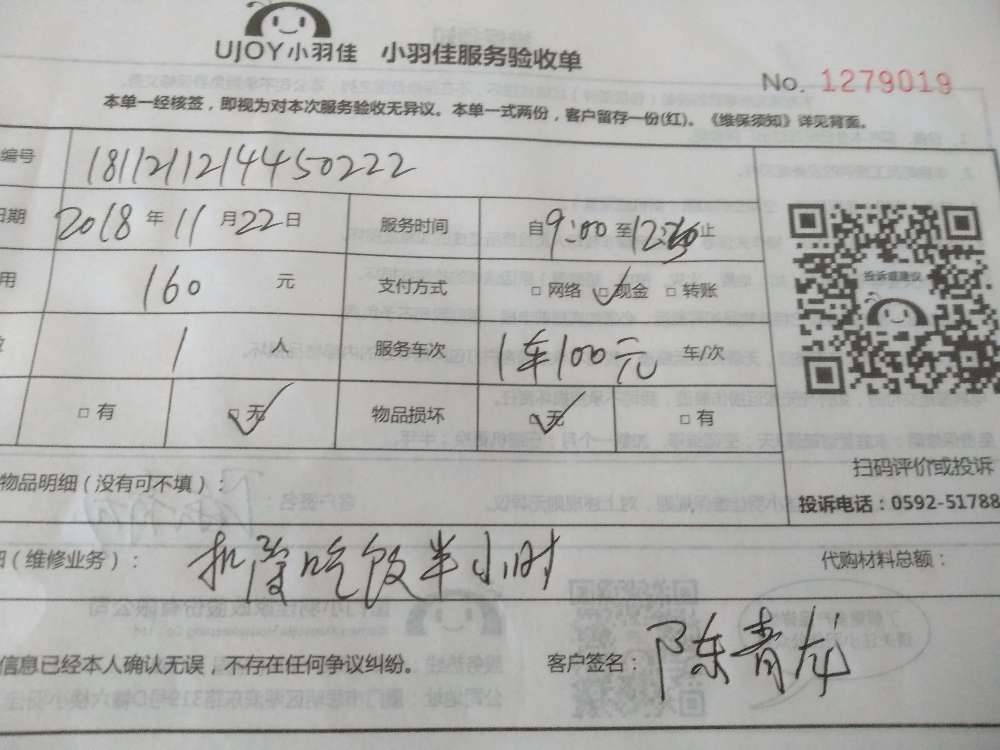 UJOY小羽佳 小羽佳服务验收单
No. 1279019
本单一经核签，即视为对本次服务验收无异议。本单一式两份，客户留存一份(红)。《维保须知》详见背面。
编号 1811211214450222
日期 2018 年 11 月 22 日 服务时间 自 9:00 至 止
用 160 元 支付方式 □ 网络 □ 现金 □ 转账
1 人 服务车次 1车100元 车/次
□ 有 □ 无 物品损坏 □ 无 □ 有
投诉或建议
扫码评价或投诉
投诉电话：0592-51788
物品明细（没有可不填）：
（维修业务）： 扣除吃饭半小时 代购材料总额：
信息已经本人确认无误，不存在任何争议纠纷。 客户签名： 陈青龙